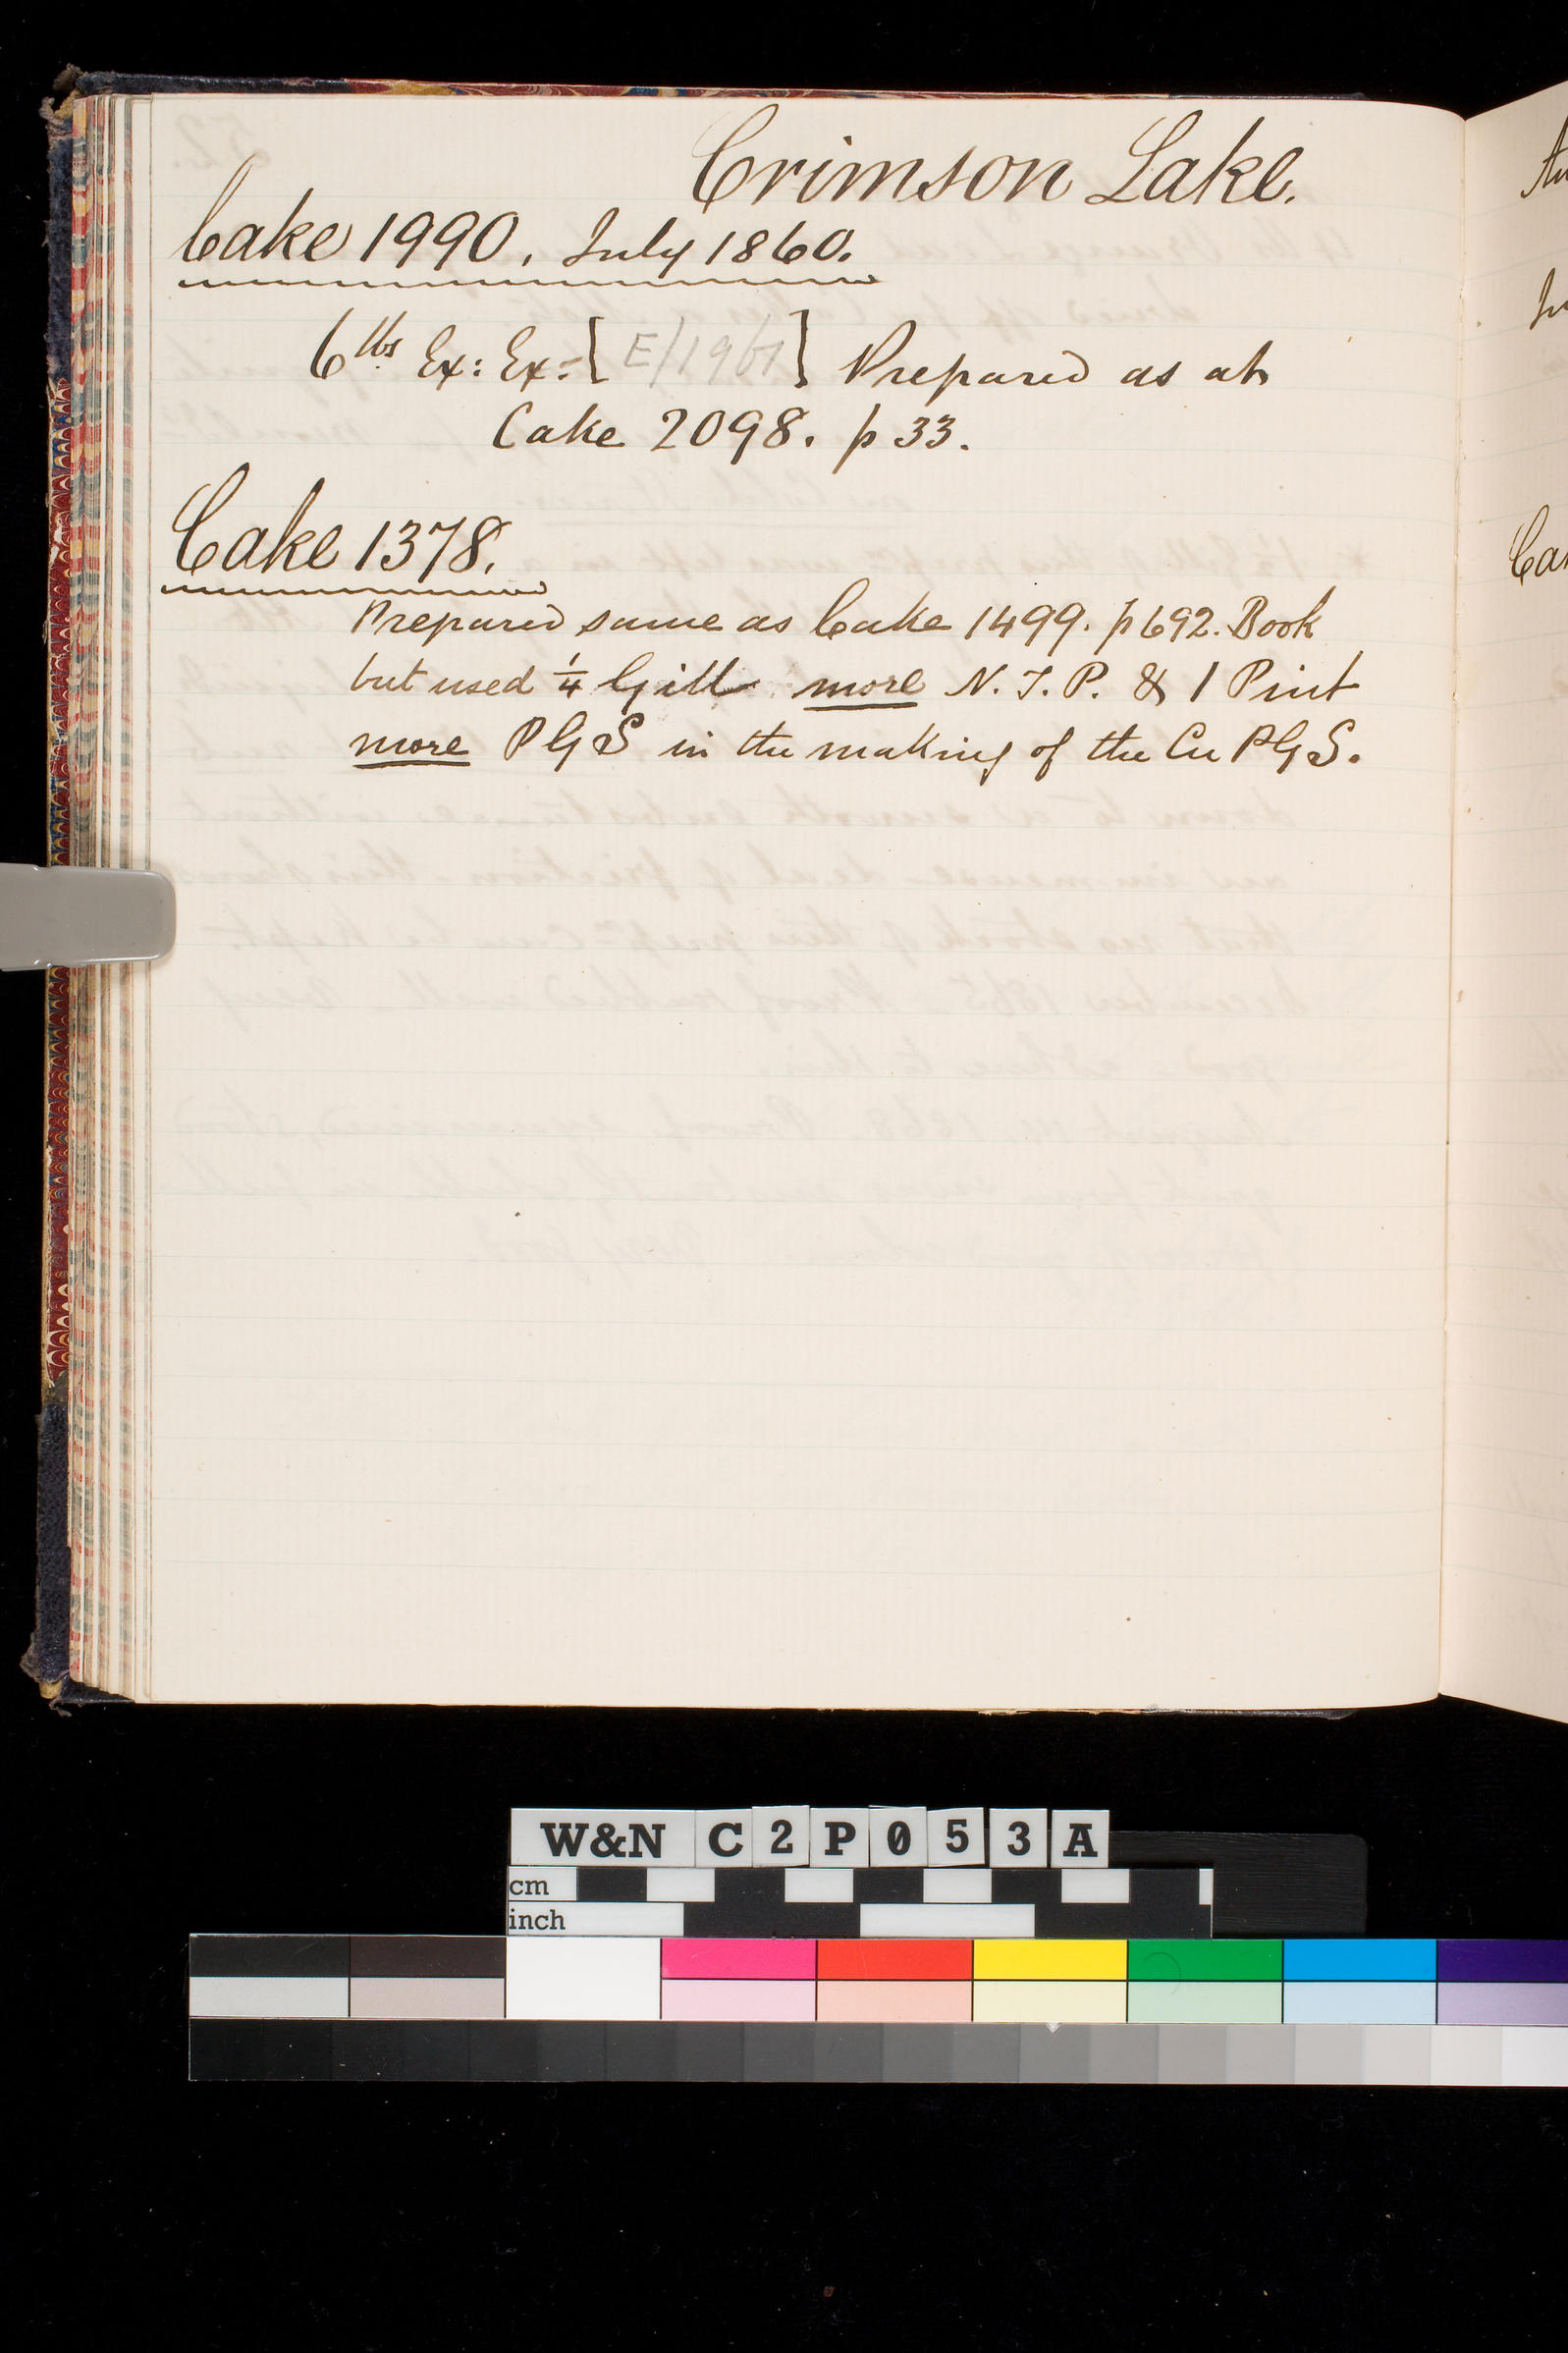 Crimson Lake.
Cake 1990. July 1860.
6 lbs Ex: Ex: [E/1961] Prepared as at
Cake 2098. p 33.
Cake 1378.
Prepared same as Cake 1499. p 692. Book
but used 1/4 Gill more N. T. P. & 1 Pint
more PGS in the making of the Cu PGS.
W&N C2P053A
cm
inch